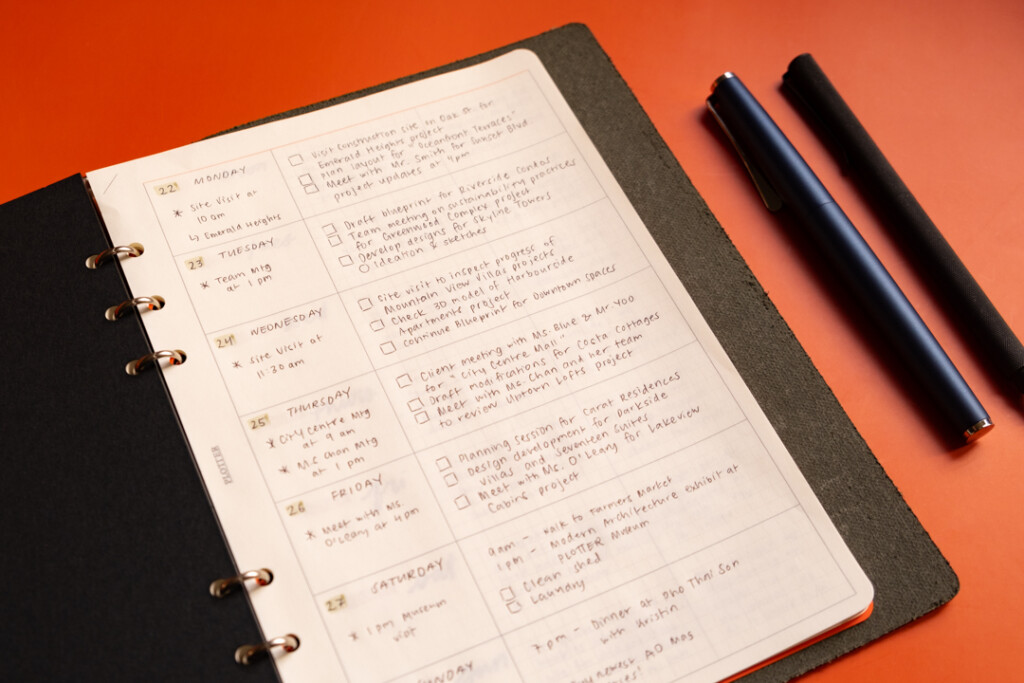 22 MONDAY
* Site Visit at
10 am
↳ Emerald Heights
☐ Visit construction site on Oak St. for
Emerald Heights project
☐ Plan layout for "Oceanfront Terraces"
☐ Meet with Mr. Smith for Sunset Blvd
project updates at 4pm
23 TUESDAY
* Team Mtg
at 1 pm
☐ Draft blueprint for Riverside Condos
☐ Team meeting on sustainability practices
for Greenwood Complex project
☐ Develop designs for Skyline Towers
○ Ideation & sketches
24 WEDNESDAY
* Site Visit at
11:30 am
☐ Site visit to inspect progress of
Mountain View Villas projects
☐ Check 3D model of Harbourside
Apartments project
☐ Continue Blueprint for Downtown spaces
25 THURSDAY
* City Centre Mtg
at 9 am
* MS Chan Mtg
at 1 pm
☐ Client meeting with Ms. Blue & Mr Yoo
for "City Centre Mall"
☐ Draft modifications for Costa Cottages
☐ Meet with Ms. Chan and her team
to review Uptown Lofts project
26 FRIDAY
* Meet with Ms.
O'Leany at 4pm
☐ Planning session for Carat Residences
☐ Design development for Parkside
Villas and Seventeen Suites
☐ Meet with Ms. O'Leany for Lakeview
Cabins project
27 SATURDAY
* 1 pm Museum
visit
9am - Walk to Farmers Market
1 pm - Modern Architecture exhibit at
PLOTTER Museum
☐ Clean shed
☐ Laundry
SUNDAY
7 pm - Dinner at Pho Thni Son
with Kristin
newest AD Mag
PLOTTER